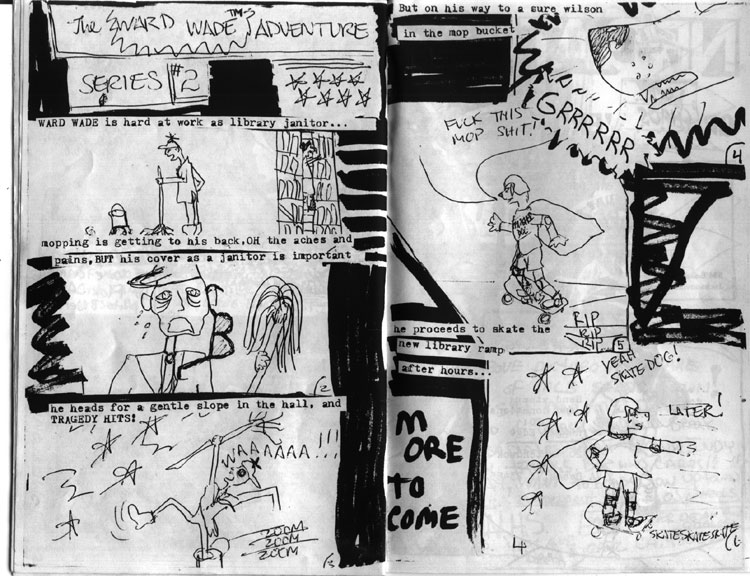 The WARD WADE ™'S ADVENTURE
SERIES #2
WARD WADE is hard at work as library janitor...
mopping is getting to his back,OH the aches and
pains,BUT his cover as a janitor is important
2
he heads for a gentle slope in the hall, and
TRAGEDY HITS!
WAAAAAA!!!
ZOOM
ZOOM
ZOOM
3
But on his way to a sure wilson
in the mop bucket
GRRRRRR
4
FUCK THIS
MOP SHIT!
he proceeds to skate the
new library ramp
after hours...
RIP
RIP
RIP
5
YEAH
SKATE DOG!
LATER!
M
ORE
TO
COME
SKATESKATESKATE
6
4